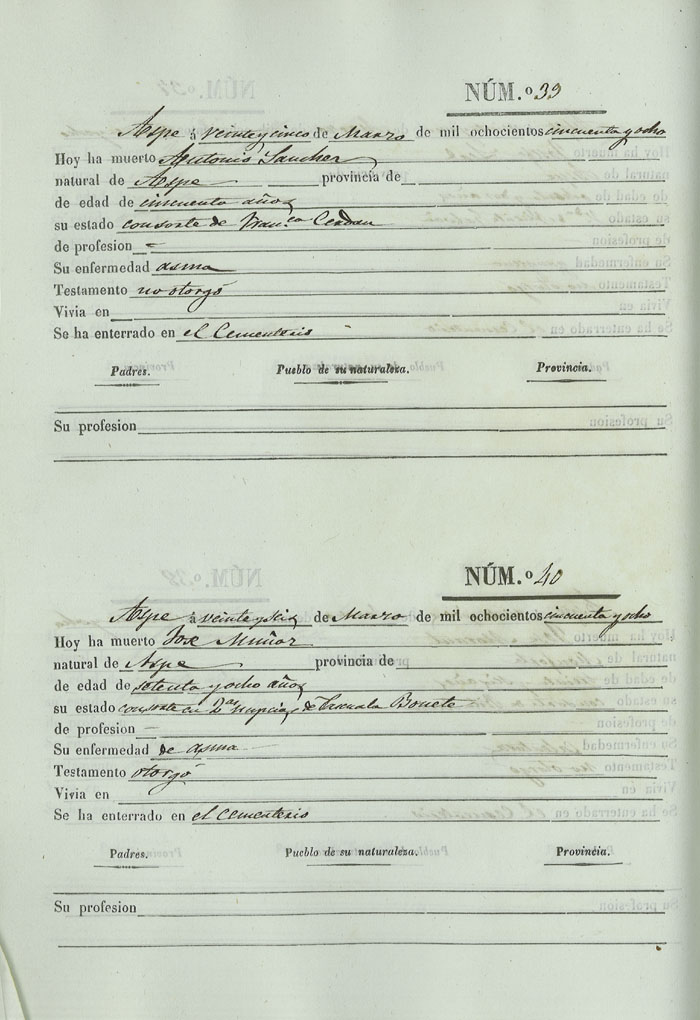 NÚM.º 39
Aspe á veinte y cinco de Marzo de mil ochocientos cincuenta y ocho
Hoy ha muerto Antonio Sanchez
natural de Aspe provincia de
de edad de cincuenta años
su estado consorte de Fran.ca Cerdan
de profesion
Su enfermedad asma
Testamento no otorgó
Vivia en
Se ha enterrado en el Cementerio
Padres. Pueblo de su naturaleza. Provincia.
Su profesion
NÚM.º 40
Aspe á veinte y seis de Marzo de mil ochocientos cincuenta y ocho
Hoy ha muerto José Muñoz
natural de Aspe provincia de
de edad de setenta y ocho años
su estado consorte en 2as nupcias de Pascuala Bonete
de profesion
Su enfermedad de asma
Testamento otorgó
Vivia en
Se ha enterrado en el cementerio
Padres. Pueblo de su naturaleza. Provincia.
Su profesion